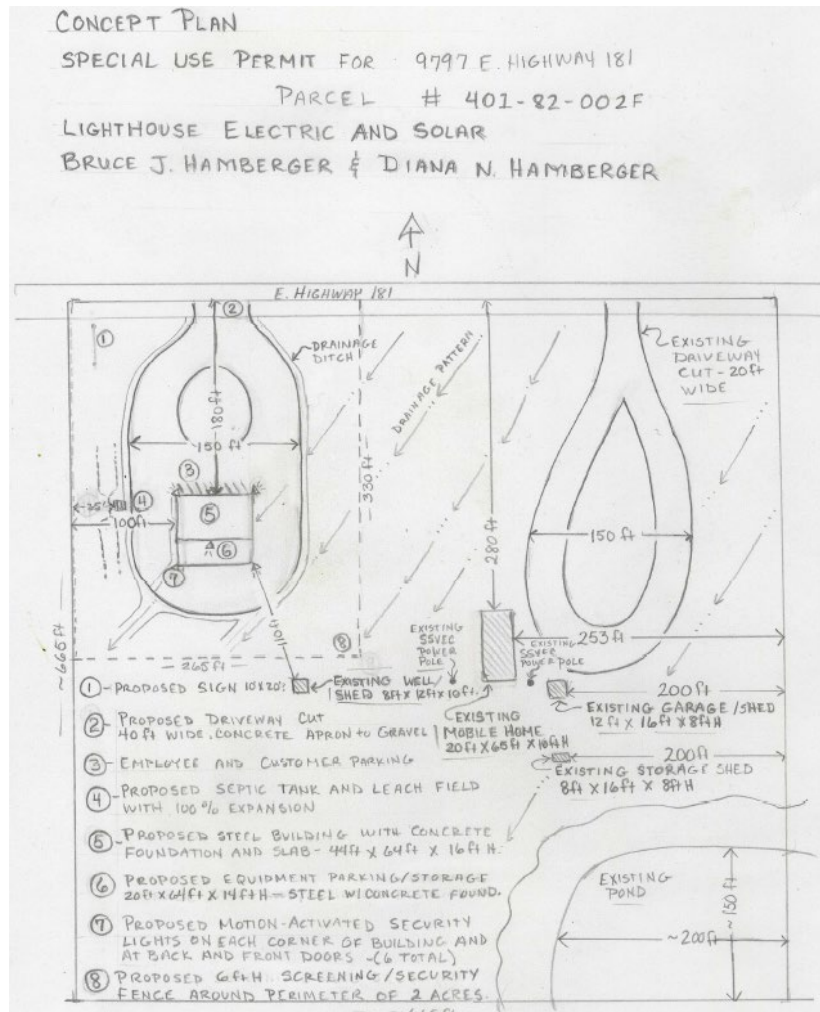 CONCEPT PLAN
SPECIAL USE PERMIT FOR 9797 E. HIGHWAY 181
PARCEL # 401-82-002F
LIGHTHOUSE ELECTRIC AND SOLAR
BRUCE J. HAMBERGER & DIANA N. HAMBERGER
N
E. HIGHWAY 181
①
②
DRAINAGE
DITCH
DRAINAGE PATTERN
EXISTING
DRIVEWAY
CUT - 20ft
WIDE
180 ft
150 ft
330 ft
280 ft
150 ft
③
④
⑤
⑥
⑦
⑧
100ft
110ft
~665ft
265ft
253ft
EXISTING
SSVEC
POWER
POLE
EXISTING
SSVEC
POWER POLE
EXISTING WELL/
SHED 8ft X 12ft X 10ft.
200ft
EXISTING GARAGE/SHED
12ft X 16ft X 8ftH
EXISTING
MOBILE HOME
20ft X 65ft X 10ftH
200ft
EXISTING STORAGE SHED
8ft X 16ft X 8ftH
EXISTING
POND
~150ft
~200ft
① - PROPOSED SIGN 10X20'
② - PROPOSED DRIVEWAY CUT
40ft WIDE, CONCRETE APRON to GRAVEL
③ - EMPLOYEE AND CUSTOMER PARKING
④ - PROPOSED SEPTIC TANK AND LEACH FIELD
WITH 100% EXPANSION
⑤ - PROPOSED STEEL BUILDING WITH CONCRETE
FOUNDATION AND SLAB - 44ft X 64ft X 16ft H.
⑥ PROPOSED EQUIPMENT PARKING/STORAGE
20ft X 64ft X 14ftH - STEEL W/CONCRETE FOUND.
⑦ PROPOSED MOTION-ACTIVATED SECURITY
LIGHTS ON EACH CORNER OF BUILDING AND
AT BACK AND FRONT DOORS - (6 TOTAL)
⑧ PROPOSED 6ftH. SCREENING/SECURITY
FENCE AROUND PERIMETER OF 2 ACRES.